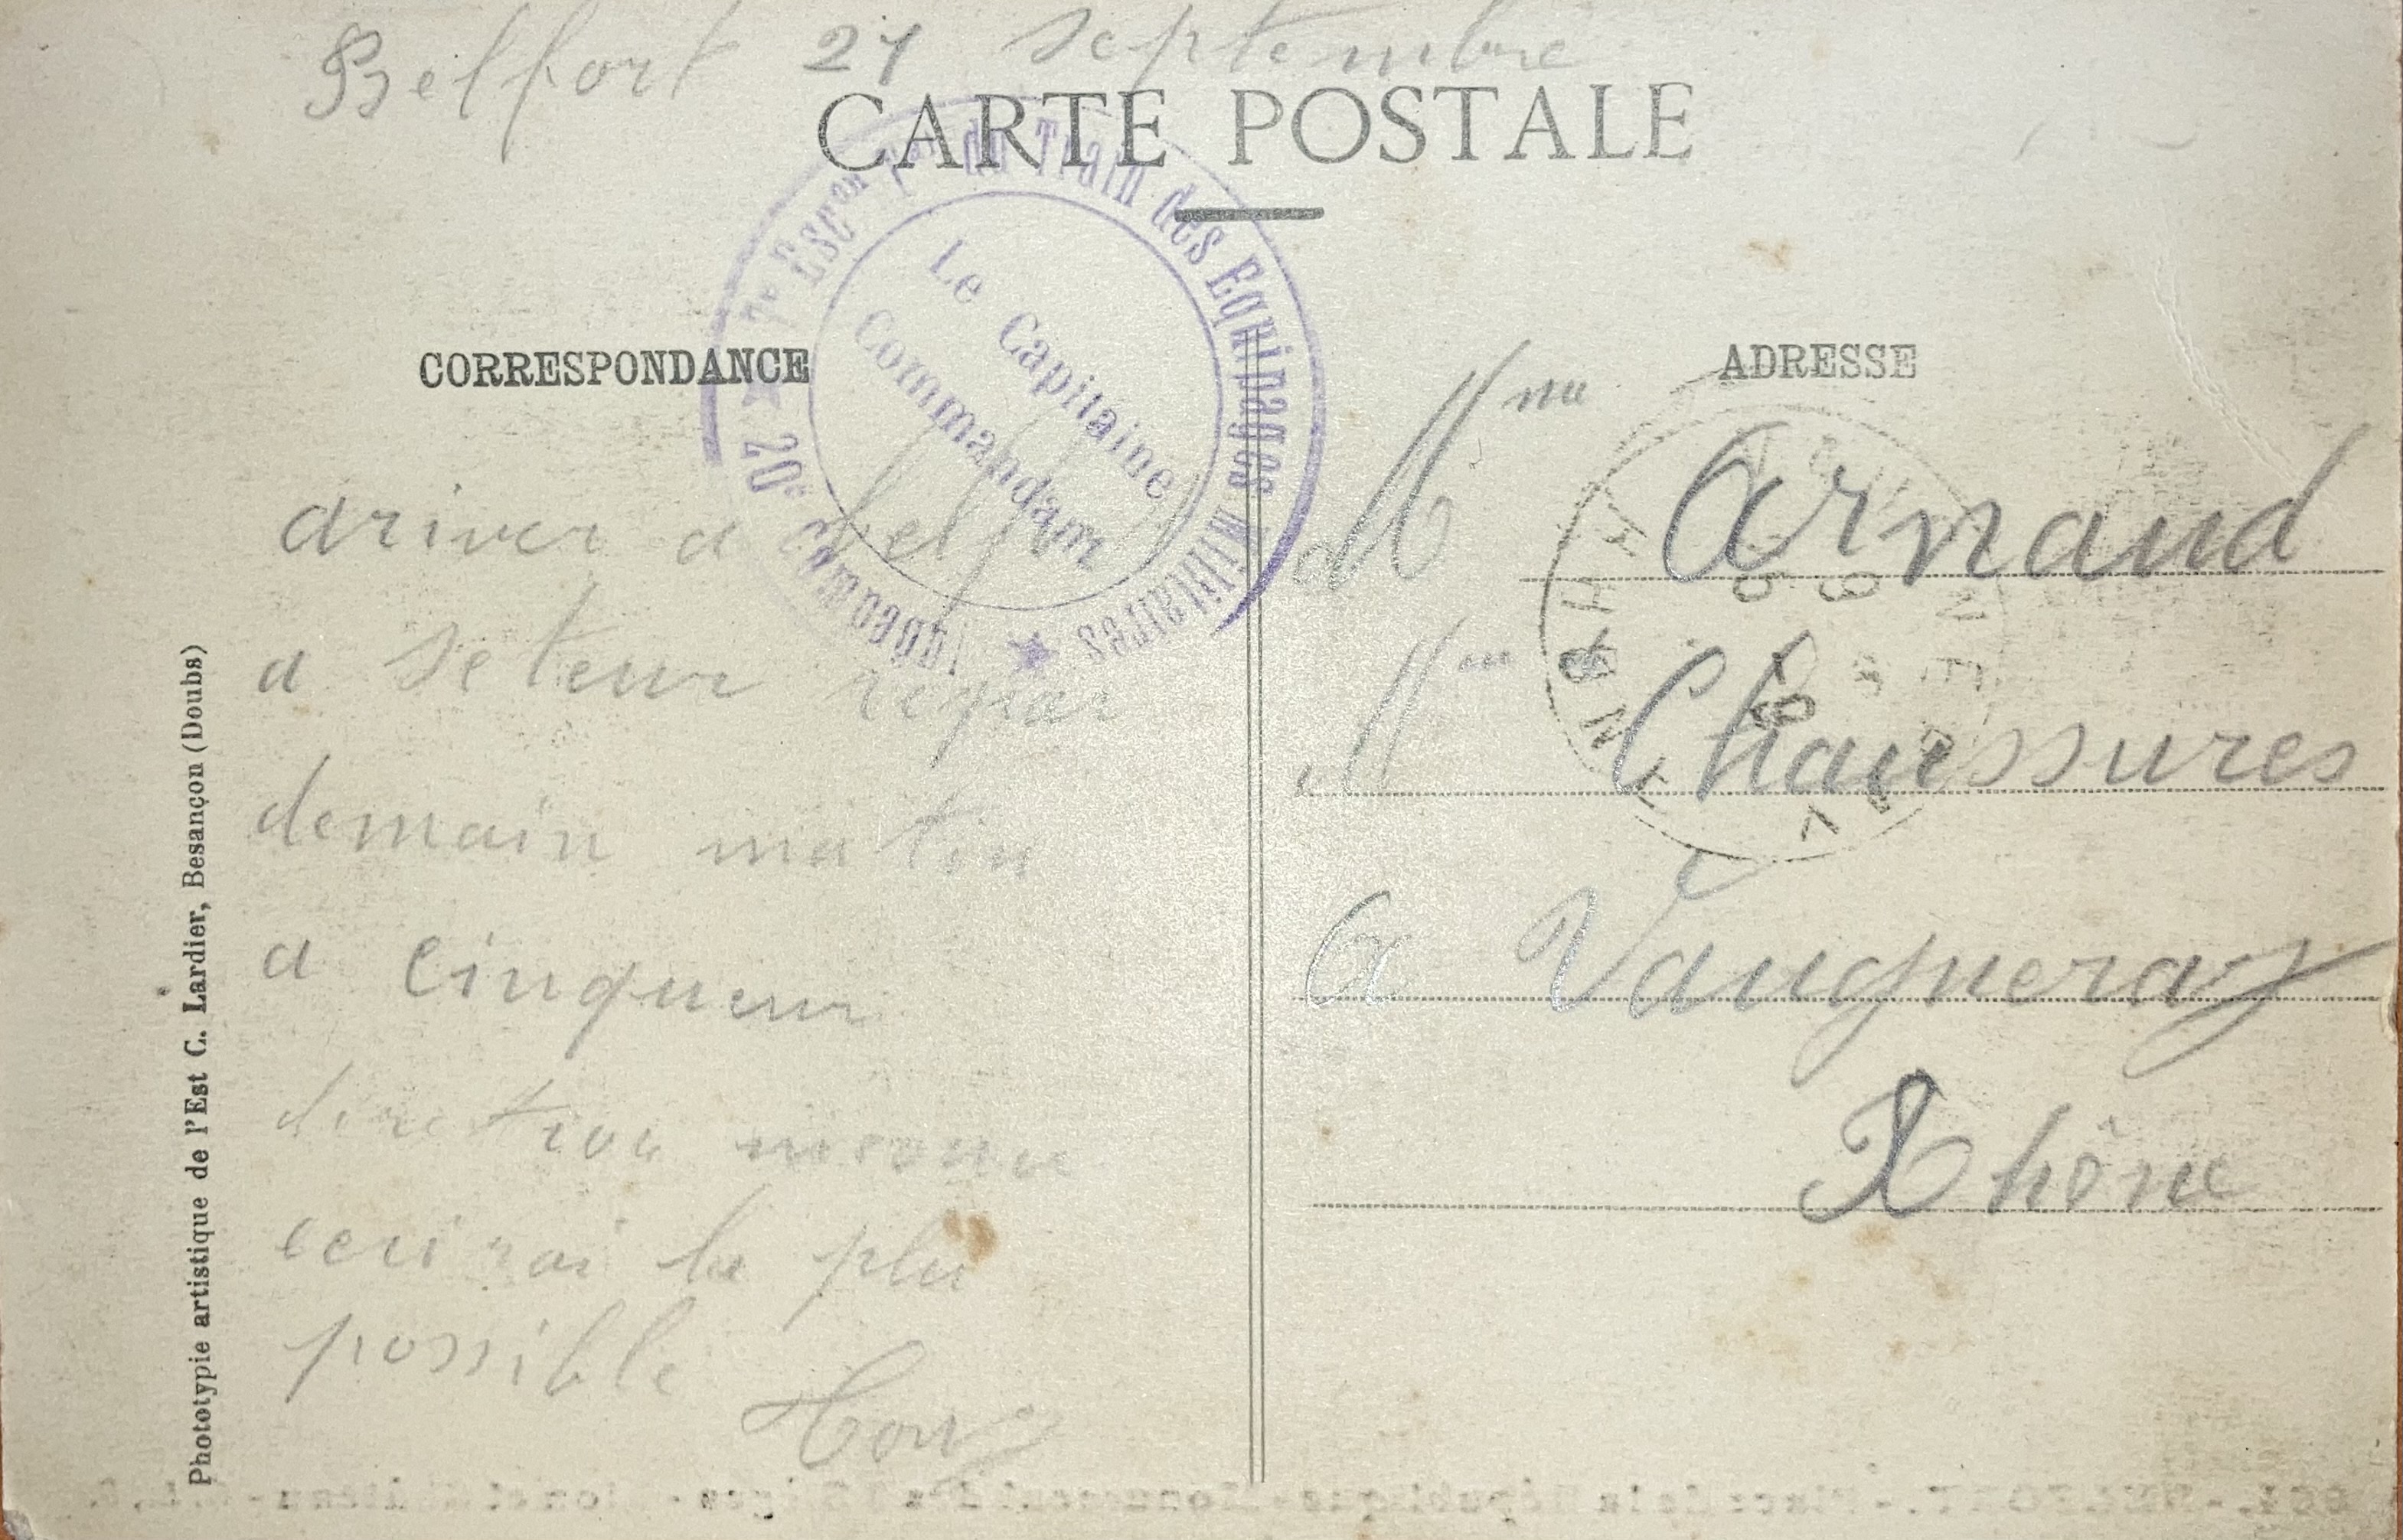 Belfort 27 septembre
CARTE POSTALE
7e Escon Tal du Train des Equipages Militaires
★ 20e Compagnie ★
Le Capitaine
Commandant
CORRESPONDANCE
ADRESSE
ariver a belfort
a seteur repar
demain matin
a cinqueur
direction inconnu
ecrirai le plu
possible
Mme Arnaud
Mme Chaussures
a Vaugneray
Rhône
Phototypie artistique de l'Est C. Lardier, Besançon (Doubs)